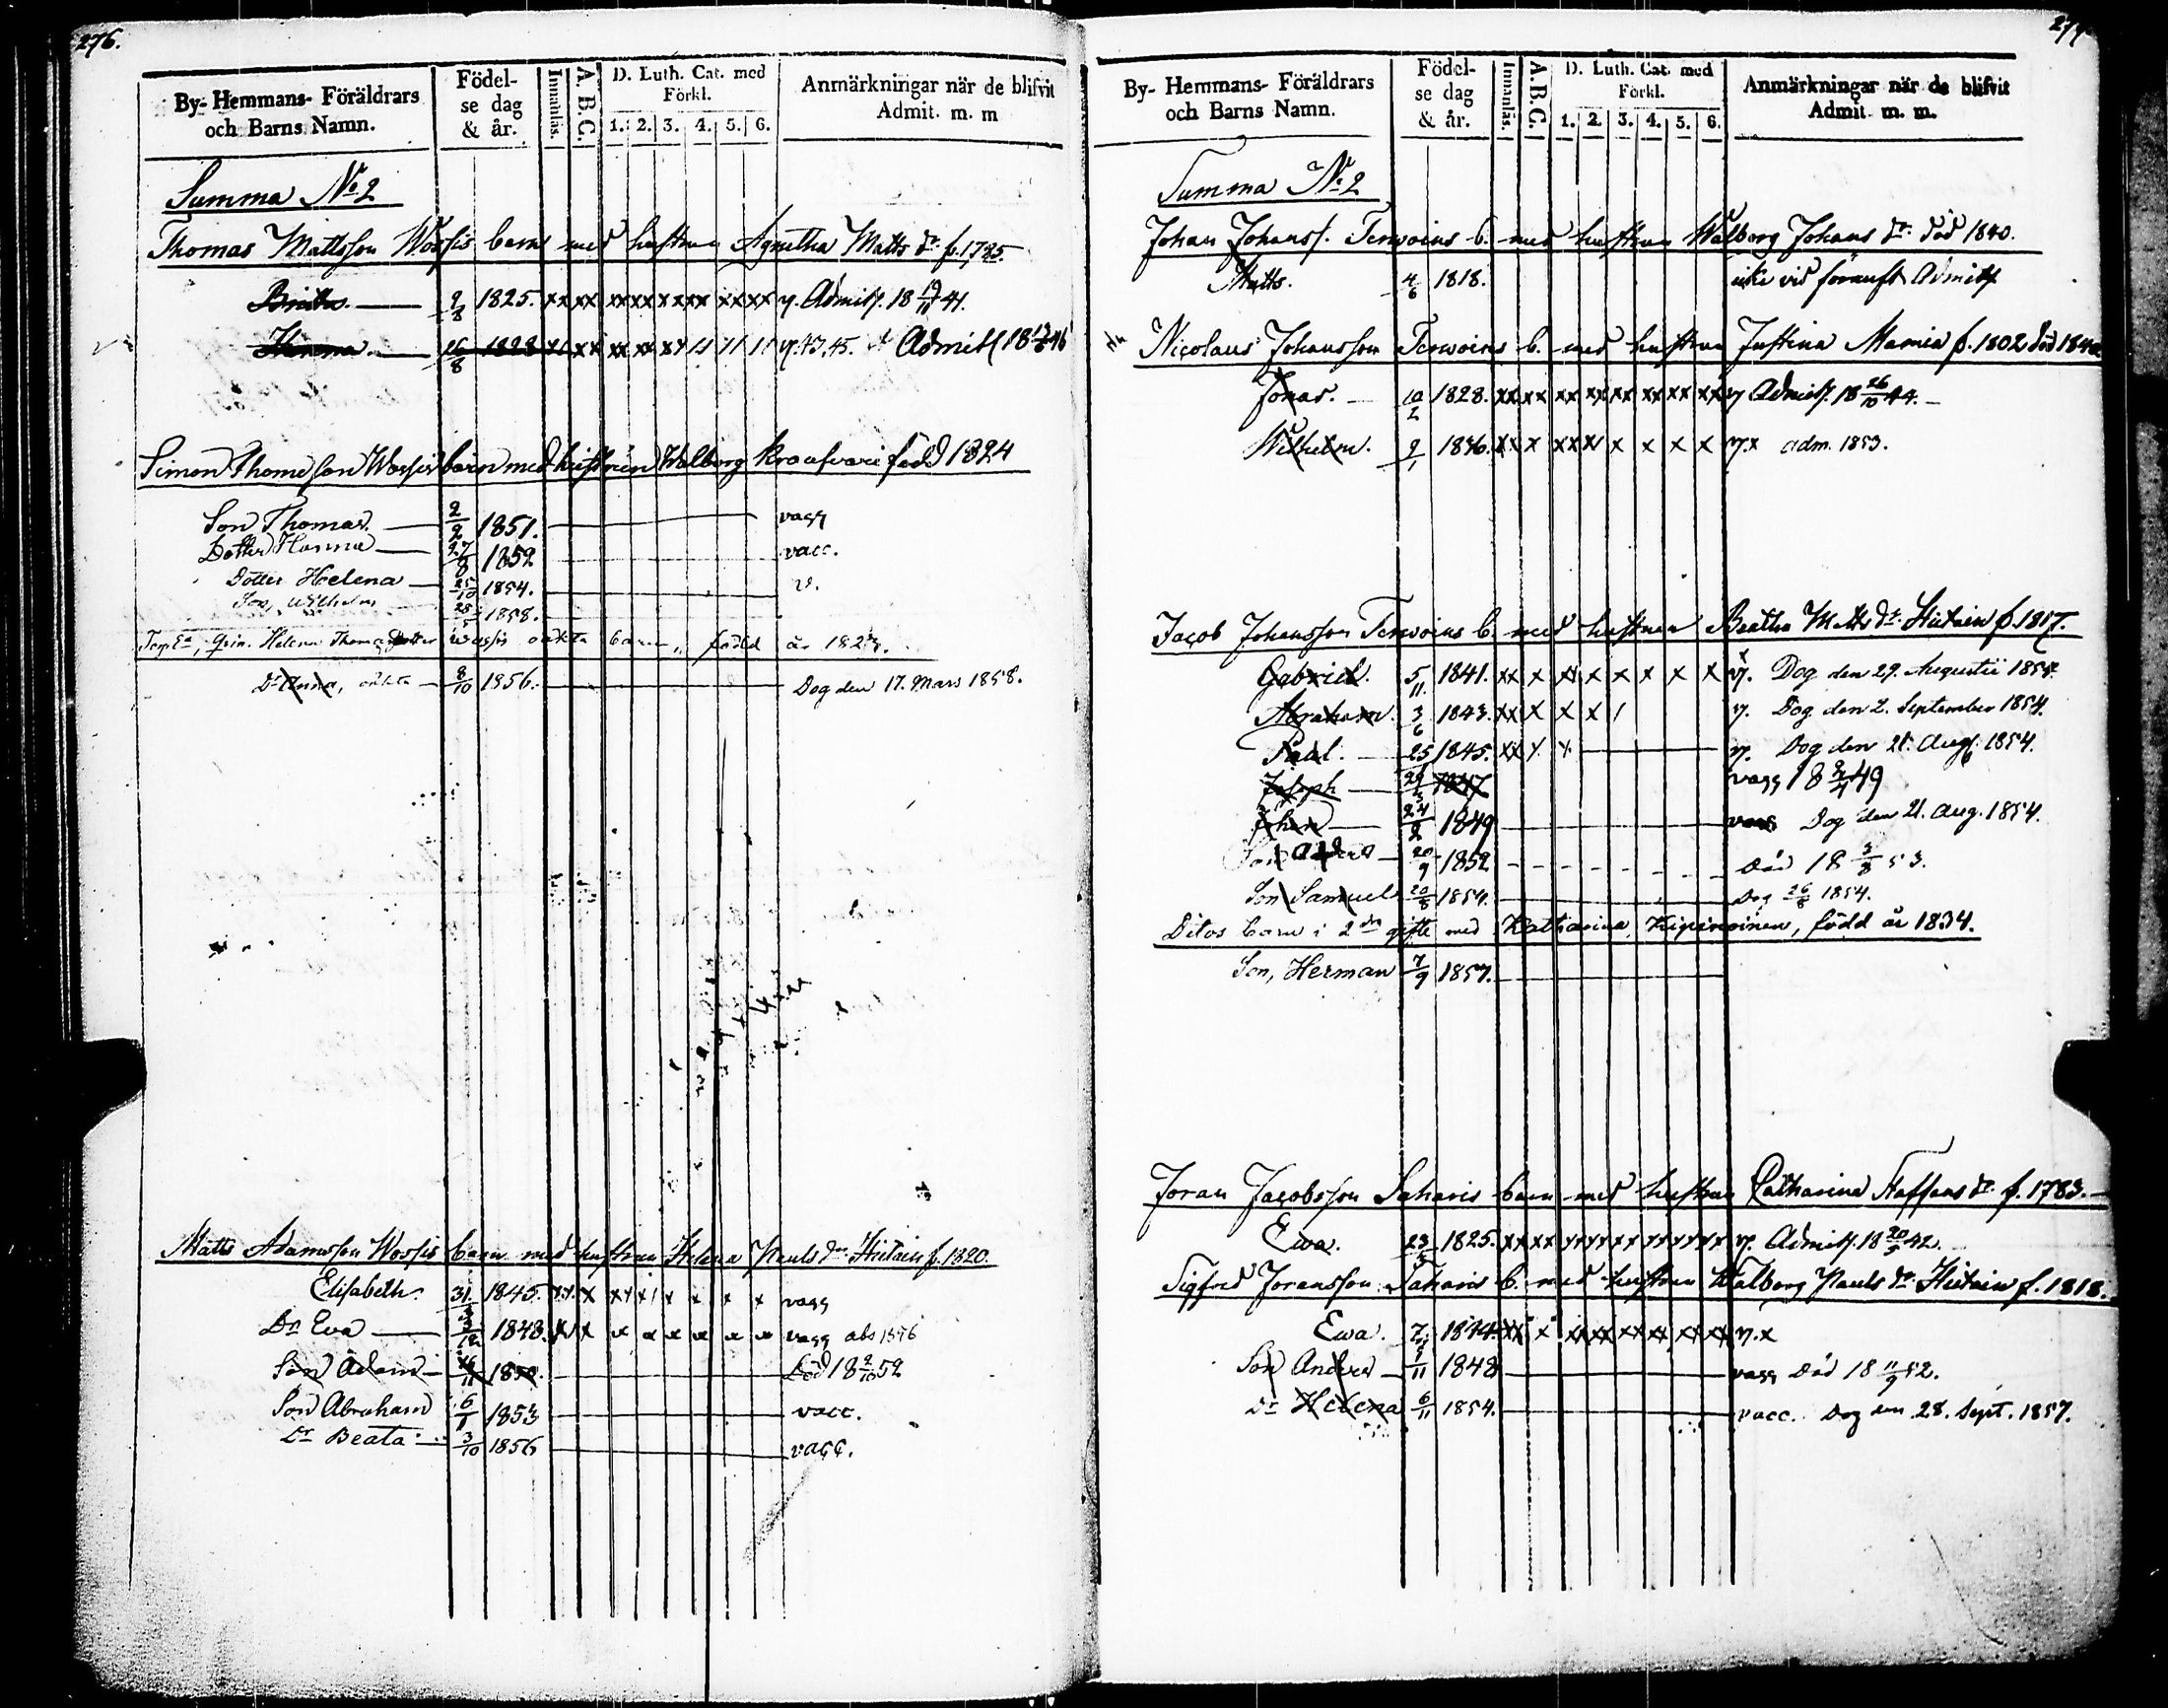 276.
By- Hemmans- Föräldrars och Barns Namn.
Födel- se dag & år.
Innanläs.
A. B. C.
D. Luth. Cat. med Förkl.
1. 2. 3. 4. 5. 6.
Anmärkningar när de blifvit Admit. m. m
Summa No 2
Thomas Mattsson Wossis barn med hustrun Agnetha Matts dr f. 1785.
1825. xx xx xx xx xx xx xx xx Admitt. 18 19/11 41.
Hanna 16/8 1828 Admitt 18 46
Simon Thomasson Wossis barn med hustrun Walborg född 1824
Son Thomas 2/2 1851. vagg
Dotter Hanna 27/8 1852 vacc.
Dotter Helena 25/10 1854. v.
Son, Wilhelm 1858.
Helena Thomasdotter Wossis oäkta barn, född år 182
Dr Anna, oäkta 8/10 1856. Dog den 17. Mars 1858.
Matts Adamsson Wossis barn med hustrun Helena Pauls dr Hirtain f. 1820.
Elisabeth. 31. 1845. xx x xx x x x x x vagg
Dr Eva 1848. vagg
Son Adam 1850. död 18 2/10 52
Son Abraham 6/1 1853 vacc.
Dr Beata 3/10 1856 vacc.
277
By- Hemmans- Föräldrars och Barns Namn.
Födel- se dag & år.
Innanläs.
A. B. C.
D. Luth. Cat. med Förkl.
1. 2. 3. 4. 5. 6.
Anmärkningar när de blifvit Admit. m. m.
Summa No 2
Johan Johanss. Terwoins b. med hustrun Walborg Johans dr. död 1840.
Matts. 4/6 1818. icke vid förnuft Admitt
Nicolaus Johansson Terwoins b. med hustrun Justina Mamia f. 1802 död 184
Jonas. 10/2 1828. xx xx xx xx xx xx xx xx Admitt. 18 26/10 44.
Wilhelm. 9/1 1836. xx x xx x x x x x adm. 1853.
Jacob Johansson Terwoins b. med hustrun Beatha Matts dr. Hirtain f. 1817.
Gabriel. 5/11. 1841. xx x xx x x x x x v. Dog den 29. Augustii 1854.
Abraham. 3/6 1843. xx x x x / v. Dog den 2. September 1854.
Paul. 25 1845. xx x x v. Dog den 21. Aug. 1854.
Joseph 1847 vagg 18 49
Johan 24/2 1849 vagg Dog den 21. Aug. 1854.
Son 20/9 1852 död 18 3/8 53.
Son Samuel 20/8 1854. Dog 26/8 1854.
Ditos barn i 2dra gifte med Katharina Kipinoinen, född år 1834.
Son, Herman 7/9 1857.
Joran Jacobsson Saharis barn med hustrun Catharina Staffans dr. f. 1783.
Ewa. 23 1825. xx xx xx xx xx xx xx v. Admitt. 18 20/5 42.
Sigfred Joransson Saharis b. med hustrun Walborg Pauls dr. Hirtain f. 1818.
Ewa. 1844 xx x xx xx xx xx xx xx v. x
Son Anders 1/11 1848 vagg död 18 11/9 52.
Dr Helena 6/11 1854. vacc. Dog den 28. Sept. 1857.